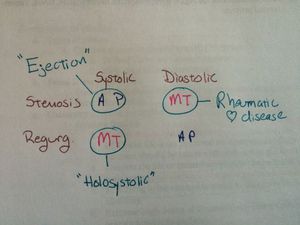 "Ejection"
Systolic Diastolic
Stenosis A P MT Rhamatic
♡ disease
Regurg. MT AP
"Holosystolic"